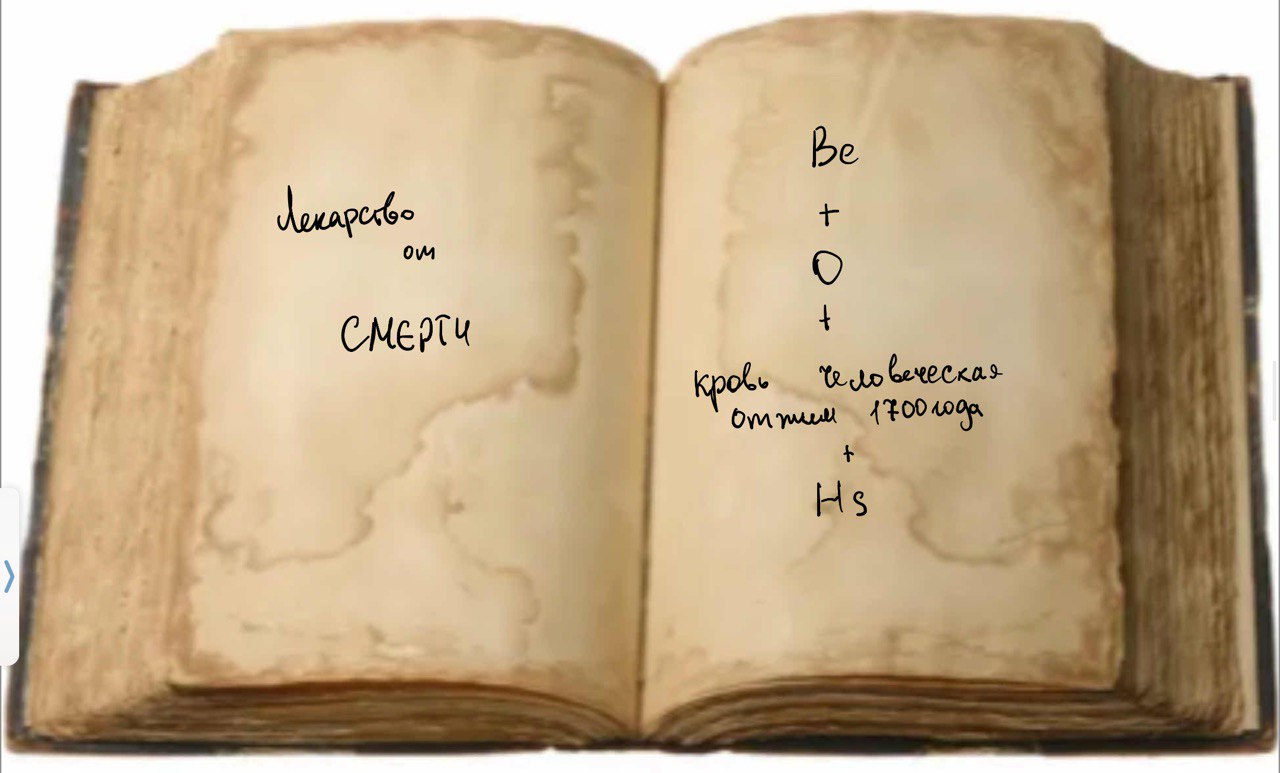 Лекарство
от
СМЕРТИ
Be
+
O
+
кровь человеческая
отжим 1700 года
+
Hs